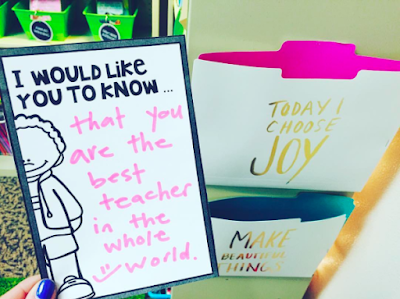 I WOULD LIKE
YOU TO KNOW...
that you
are the
best
teacher
in the
whole
world.
TODAY I
CHOOSE
JOY
MAKE
BEAUTIFUL
THINGS